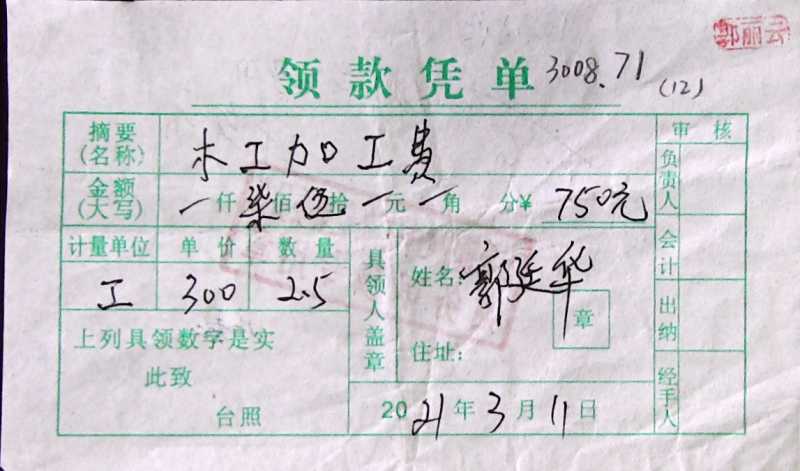 郭丽云
领款凭单 3008.71
(12)
摘要(名称) 木工加工费
金额(大写) 一仟柒佰伍拾一元一角 分¥ 750元
计量单位 单价 数量
工 300 2.5
上列具领数字是实
此致
台照
具领人盖章
姓名：郭廷华
章
住址：
2021年3月11日
审核
负责人
会计
出纳
经手人